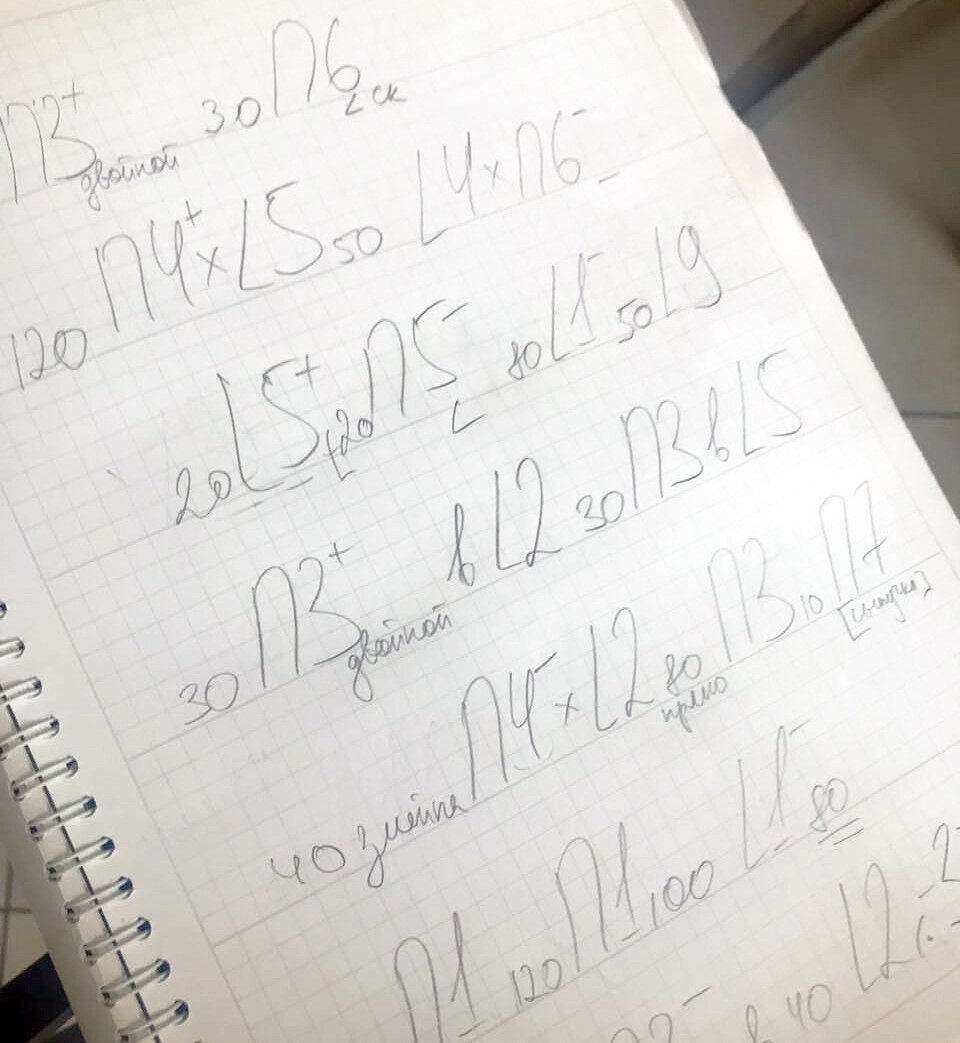 П3⁺ двойной 30 П6 < ск
120 П4⁺ x L5 50 L4 x П6⁻ –
20 L5⁺ 120 П5⁻ < 80 L1⁻ 50 L9
30 П3⁺ двойной в L2 30 П3 в L5
40 змейка П4⁻ x L2 80 прямо П3 10 П7
П1 120 П1 100 L1⁻ 80
в 40 L2